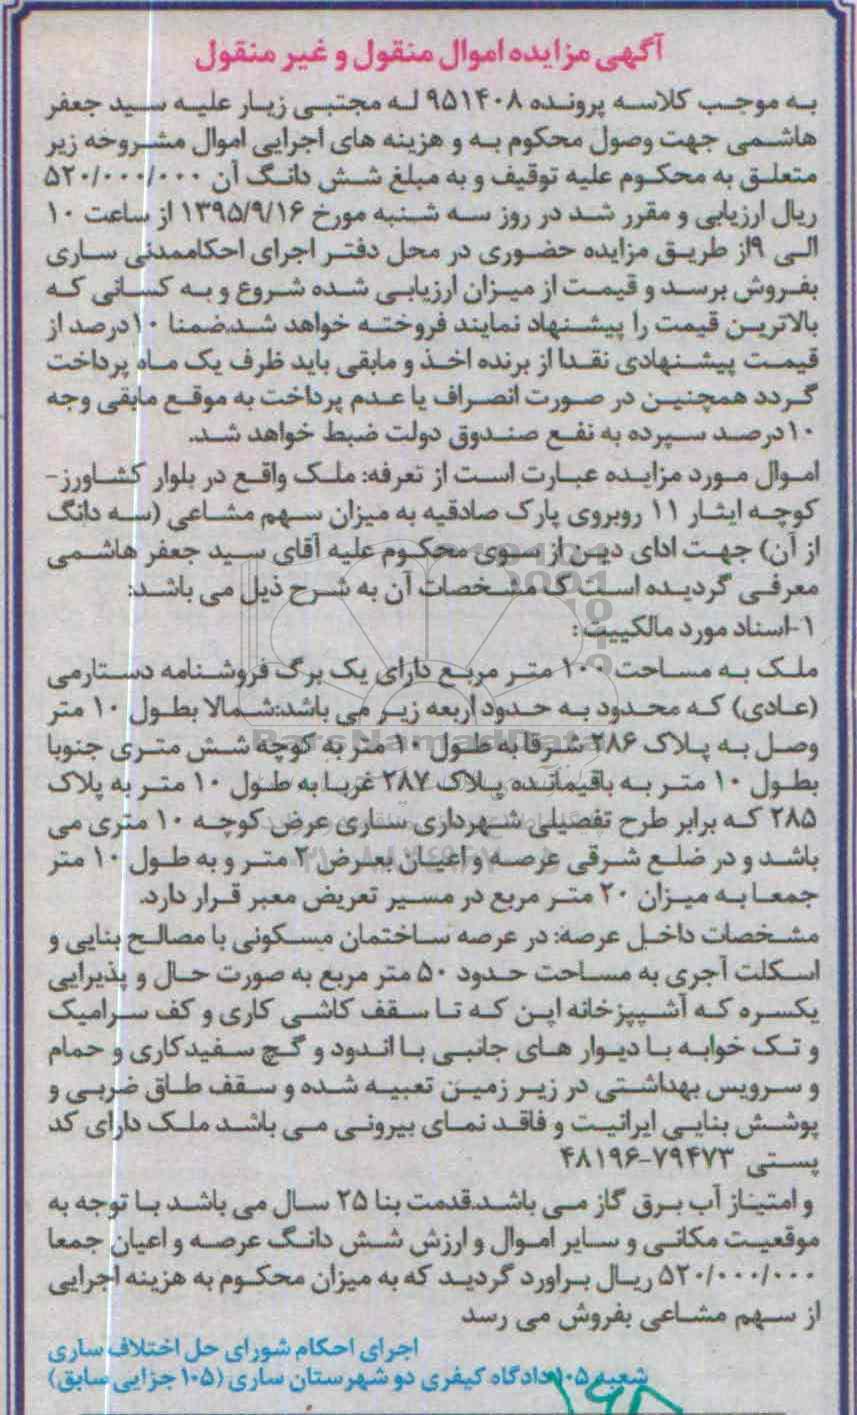 آگهی مزایده اموال منقول و غیر منقول
به موجب کلاسه پرونده ۹۵۱۴۰۸ له مجتبی زیار علیه سید جعفر
هاشمی جهت وصول محکوم به و هزینه های اجرایی اموال مشروحه زیر
متعلق به محکوم علیه توقیف و به مبلغ شش دانگ آن ۵۲۰/۰۰۰/۰۰۰
ریال ارزیابی و مقرر شد در روز سه شنبه مورخ ۱۳۹۵/۹/۱۶ از ساعت ۱۰
الی ۹از طریق مزایده حضوری در محل دفتر اجرای احکاممدنی ساری
بفروش برسد و قیمت از میزان ارزیابی شده شروع و به کسانی که
بالاترین قیمت را پیشنهاد نمایند فروخته خواهد شد.ضمنا ۱۰درصد از
قیمت پیشنهادی نقدا از برنده اخذ و مابقی باید ظرف یک ماه پرداخت
گردد همچنین در صورت انصراف یا عدم پرداخت به موقع مابقی وجه
۱۰درصد سپرده به نفع صندوق دولت ضبط خواهد شد.
اموال مورد مزایده عبارت است از تعرفه: ملک واقع در بلوار کشاورز-
کوچه ایثار ۱۱ روبروی پارک صادقیه به میزان سهم مشاعی (سه دانگ
از آن) جهت ادای دین از سوی محکوم علیه آقای سید جعفر هاشمی
معرفی گردیده است ک مشخصات آن به شرح ذیل می باشد:
۱-اسناد مورد مالکییت :
ملک به مساحت ۱۰۰ متر مربع دارای یک برگ فروشنامه دستارمی
(عادی) که محدود به حدود اربعه زیر می باشد:شمالا بطول ۱۰ متر
وصل به پلاک ۲۸۶ شرقا به طول ۱۰ متر به کوچه شش متری جنوبا
بطول ۱۰ متر به باقیمانده پلاک ۲۸۷ غربا به طول ۱۰ متر به پلاک
۲۸۵ که برابر طرح تفصیلی شهرداری ساری عرض کوچه ۱۰ متری می
باشد و در ضلع شرقی عرصه و اعیان بعرض ۲ متر و به طول ۱۰ متر
جمعا به میزان ۲۰ متر مربع در مسیر تعریض معبر قرار دارد.
مشخصات داخل عرصه: در عرصه ساختمان مسکونی با مصالح بنایی و
اسکلت آجری به مساحت حدود ۵۰ متر مربع به صورت حال و پذیرایی
یکسره که آشپیزخانه اپن که تا سقف کاشی کاری و کف سرامیک
و تک خوابه با دیوار های جانبی با اندود و گچ سفیدکاری و حمام
و سرویس بهداشتی در زیر زمین تعبیه شده و سقف طاق ضربی و
پوشش بنایی ایرانیت و فاقد نمای بیرونی می باشد ملک دارای کد
پستی ۷۹۴۷۳-۴۸۱۹۶
و امتیناز آب برق گاز می باشد.قدمت بنا ۲۵ سال می باشد با توجه به
موقعیت مکانی و سایر اموال و ارزش شش دانگ عرصه و اعیان جمعا
۵۲۰/۰۰۰/۰۰۰ ریال براورد گردید که به میزان محکوم به هزینه اجرایی
از سهم مشاعی بفروش می رسد
اجرای احکام شورای حل اختلاف ساری
شعبه ۱۰۵دادگاه کیفری دو شهرستان ساری (۱۰۵ جزایی سابق)